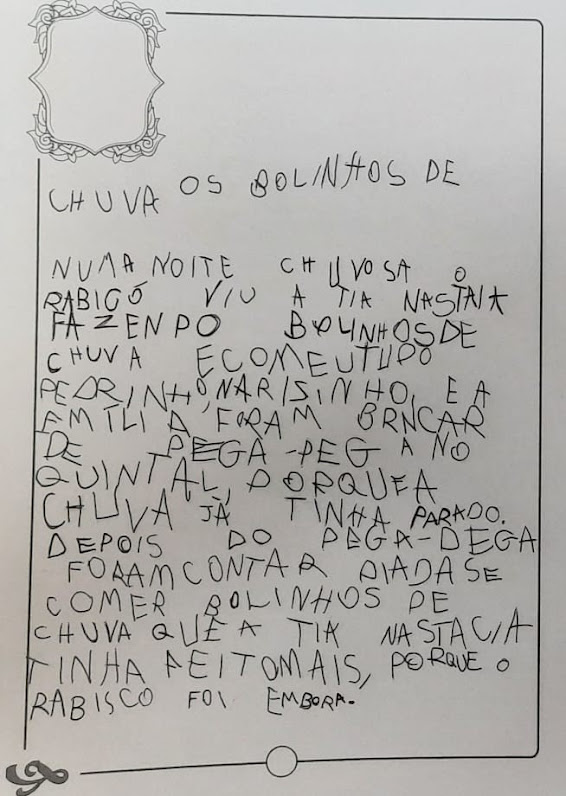 OS BOLINHOS DE
CHUVA
NUMA NOITE CHUVOSA O
RABICÓ VIU A TIA NASTAIA
FAZENPO BOLINHOSDE
CHUVA ECOMEUTUDO
PEDRINHO,NARISINHO, E A
EMÍLIA, FORAM BRNCAR
DE PEGA-PEG A NO
QUINTAL, PORQUEA
CHUVA JÁ TINHA PARADO.
DEPOIS DO PEGA-DEGA
FORAMCONTAR PIADASE
COMER BOLINHOS DE
CHUVA QUE A TIA NASTACIA
TINHA FEITOMAIS, PORQUE O
RABISCO FOI EMBORA.